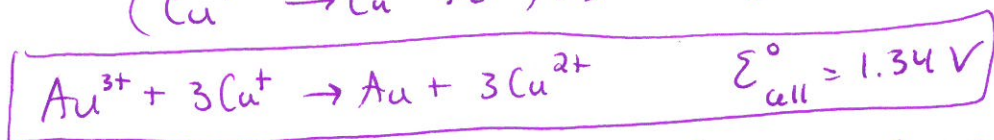 (Cu → Cu
Au³⁺ + 3Cu⁺ → Au + 3Cu²⁺ ℰ°cell = 1.34 V